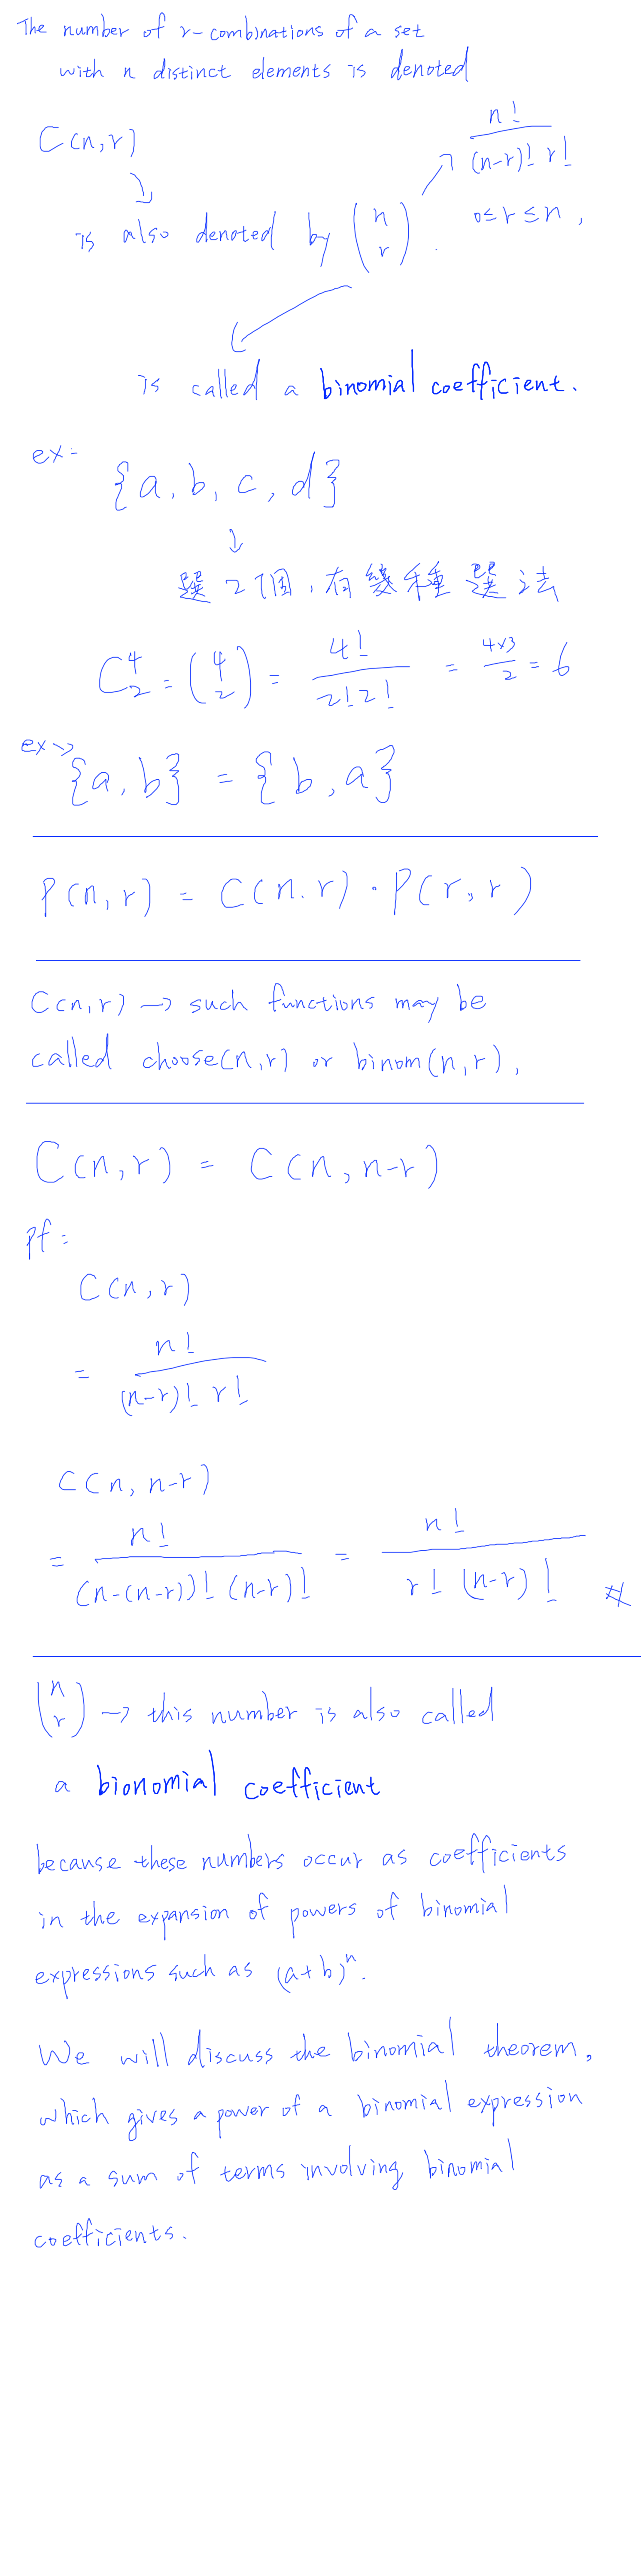 The number of r-combinations of a set
with n distinct elements is denoted
C(n,r)
n!
(n-r)! r!
0≤r≤n,
is also denoted by (n r).
is called a binomial coefficient.
ex:
{a, b, c, d}
選2個,有幾種選法
C⁴₂ = (4 2) = 4! / 2!2! = 4×3 / 2 = 6
ex→
{a, b} = {b, a}
P(n,r) = C(n.r) · P(r,r)
C(n,r) → such functions may be
called choose(n,r) or binom(n,r),
C(n,r) = C(n,n-r)
pf:
C(n,r)
= n! / (n-r)! r!
C(n, n-r)
= n! / (n-(n-r))! (n-r)! = n! / r! (n-r)! #
(n r) → this number is also called
a bionomial coefficient
because these numbers occur as coefficients
in the expansion of powers of binomial
expressions such as (a+b)ⁿ.
We will discuss the binomial theorem,
which gives a power of a binomial expression
as a sum of terms involving binomial
coefficients.